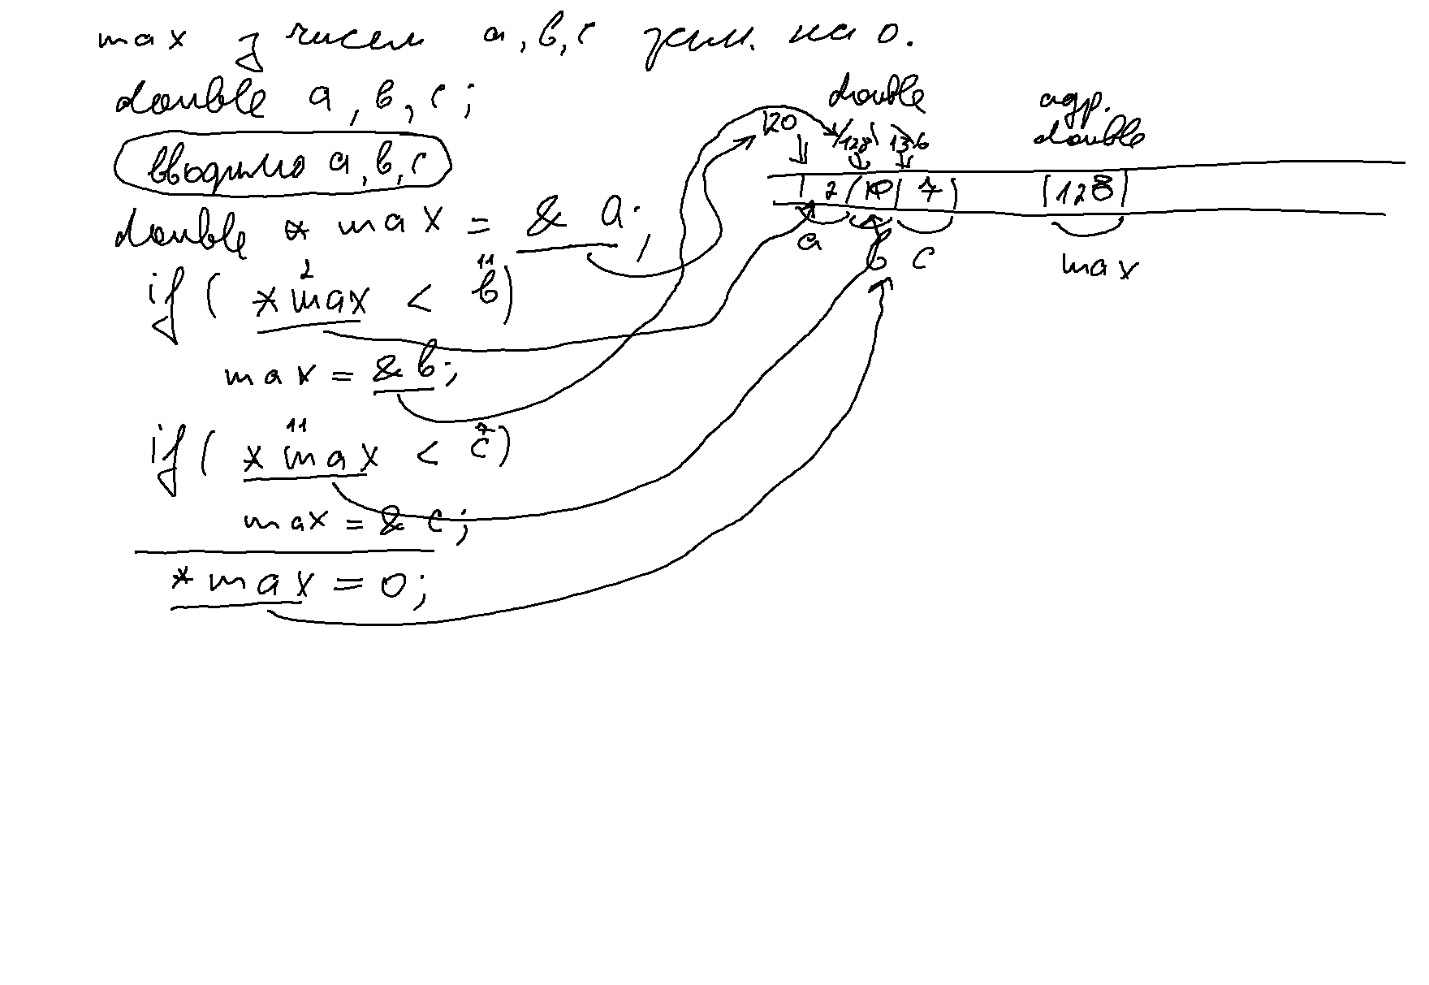 max з чисел a, b, c зам. на 0.
double a, b, c;
вводимо a, b, c
double * max = & a;
2 11
if ( *max < b)
max = & b;
11 7
if ( *max < c)
max = & c;
*max = 0;
double адр.
double
120 128 136
2 7 128
a b c max